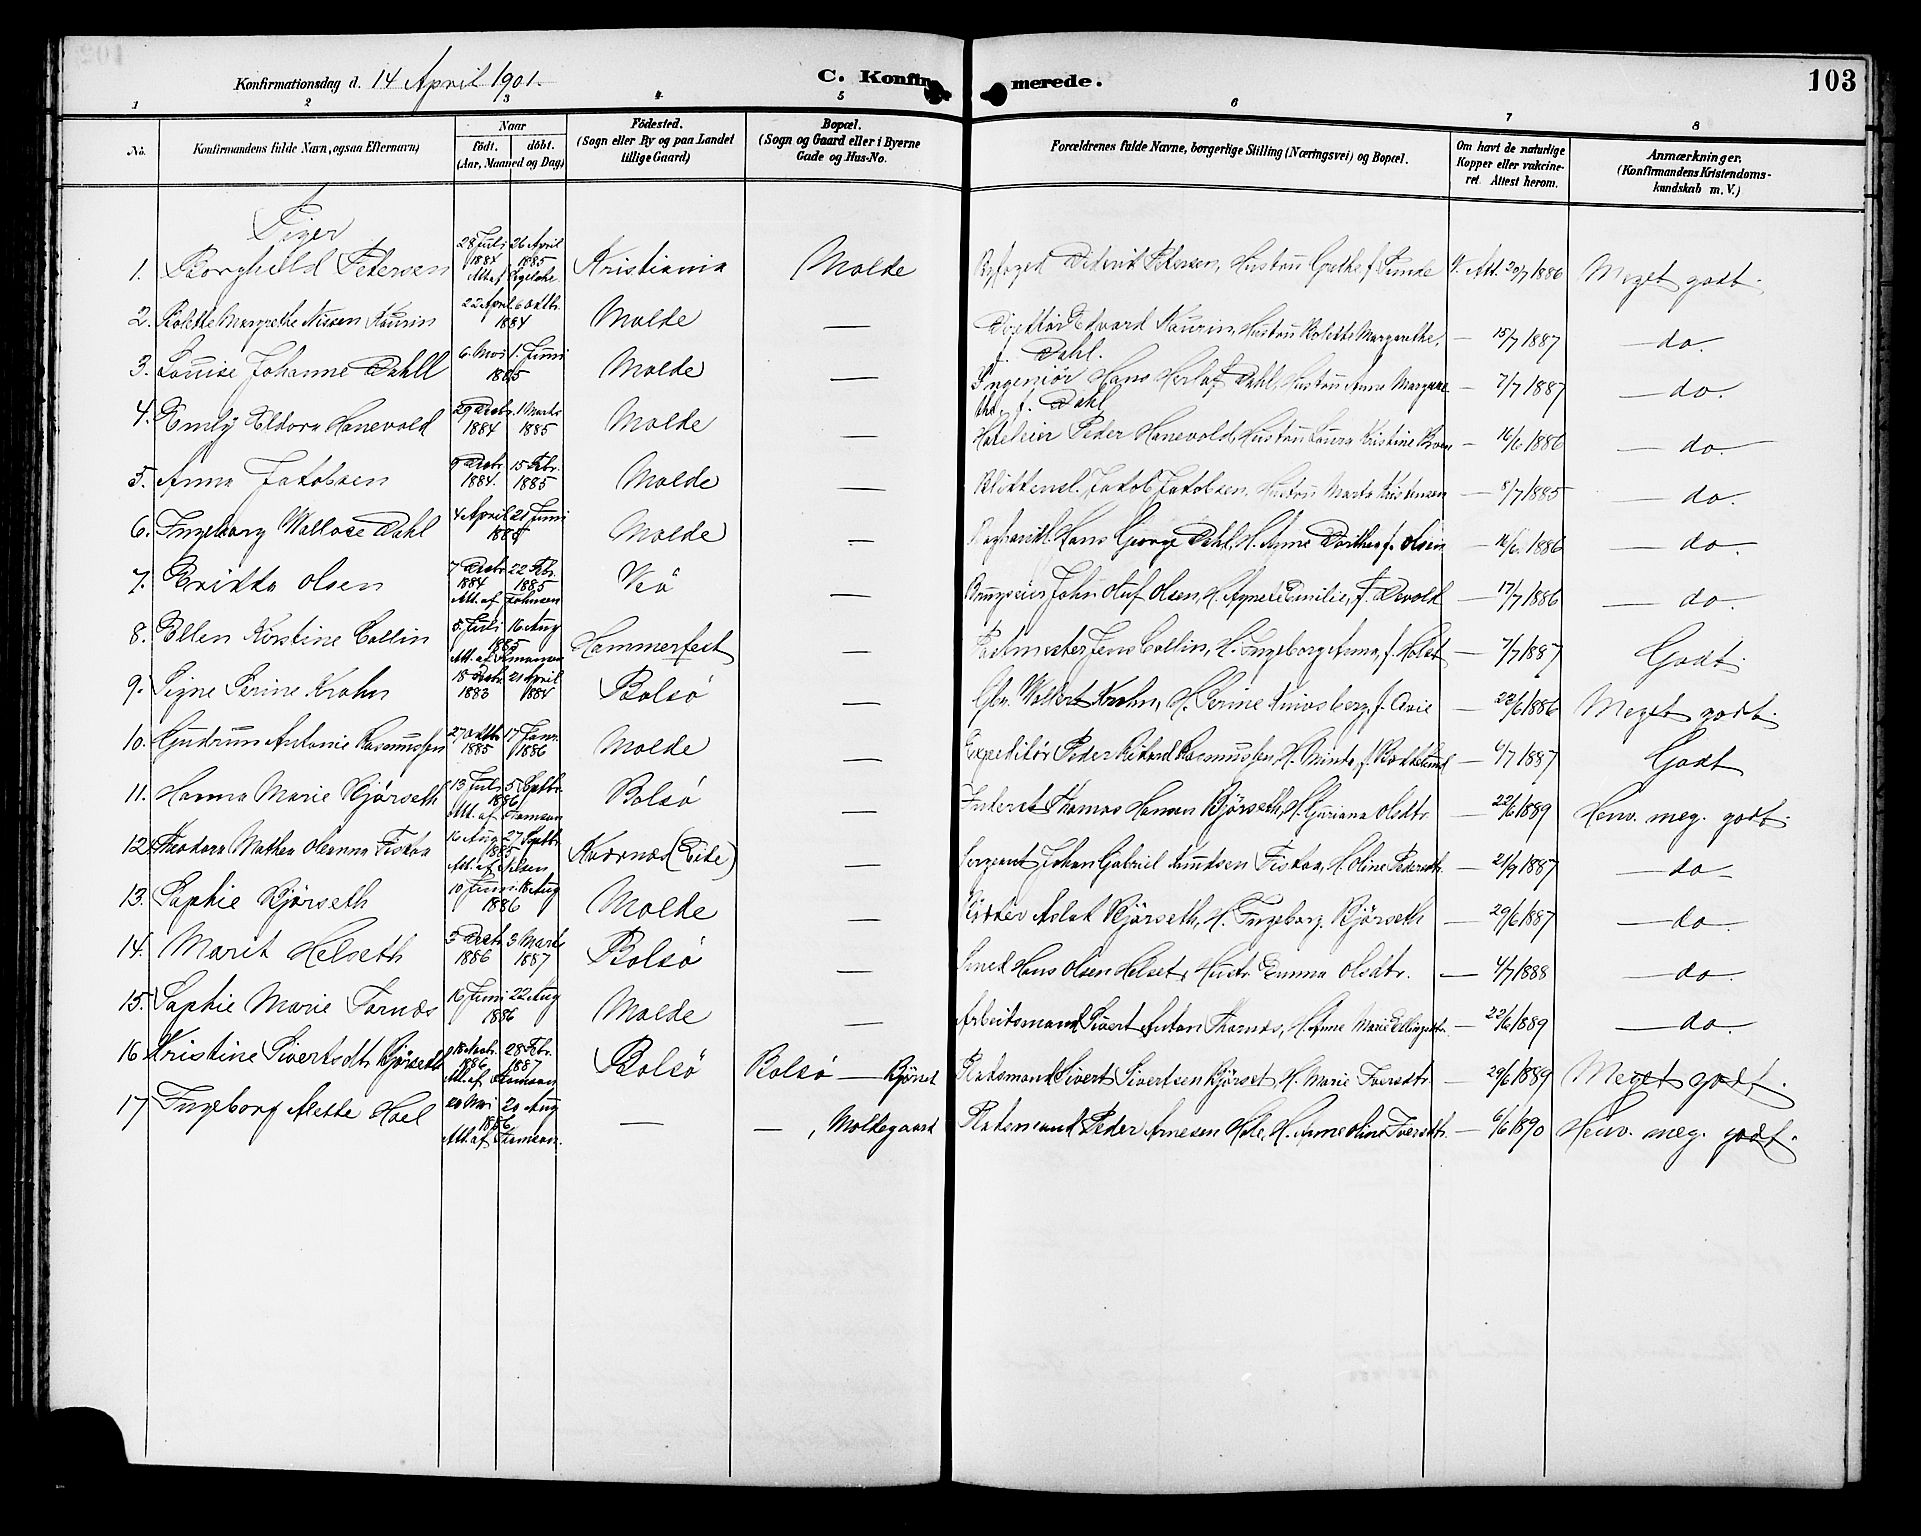 103
Konfirmationsdag d. 14 April 1901.
C. Konfirmerede.
1 2 3 4 5 6 7 8
No.
Konfirmandens fulde Navn, ogsaa Efternavn)
Naar
födt. döbt.
(Aar, Maaned og Dag)
Födested.
(Sogn eller By og paa Landet
tillige Gaard)
Bopæl.
(Sogn og Gaard eller i Byerne
Gade og Hus-No.
Forældrenes fulde Navne, borgerlige Stilling (Næringsvei) og Bopæl.
Om havt de naturlige
Kopper eller vakcine-
ret. Attest herom.
Anmærkninger.
(Konfirmandens Kristendoms-
kundskab m. V.)
Piger
1. Borghild Petersen 28 Juli 1884 26 April 1885 Kristiania Molde Byfoged Diderik Petersen, Hustru Grethe f. Funde V. Att. 20/7 1886 Meget godt.
2. Bolette Margrethe Nissen Kaurin 22 April 6 Oktbr. 1884 Molde — Edvard Kaurin, Hustru Bolette Margarethe, f. Dahl. — 15/7 1887 — do.
3. Louise Johanne Dahll 6. Mai 1. Juni 1885 Molde — Ingeniør Hans Herlof Dahl, Hustru Anna Margrethe, f. Dahl — 7/7 1887 — do.
4. Emly Eldora Hanevold 29 Decbr. 1884 1 Marts 1885 Molde — Peder Hanevold, Hustru Laura Kristine — 16/6 1886 — do.
5. Anna Jakobsen 9 Decbr 1884. 15 Febr. 1885 Molde — Blikkensl. Jakob Jakobsen, Hustru Marta Kristensen — 8/7 1885 — do.
6. Ingeborg Wallose Dahl 4 April 21 Juni 1885 Molde — Hans George Dahl, H. Anne Dorthea f. Olsen — 16/6 1886 — do.
7. Erikka Olsen 7 Decbr 1884 22 Febr. 1885 Att. af Johnsen Veö — John Oluf Olsen, H. Agnete Emilie, f. Devold — 17/7 1886 — do.
8. Ellen Kirstine Collin 5. Juli 16 Aug 1885 Hammerfest — Postmester Jens Collin, H. Ingeborg Anna, f. Holst — 7/7 1887 Godt.
9. Signe Serine Krohn 18 Decbr. 1883 21 April 1884 Bolsø — Wollert Krohn, H. Serine Kinosberg, f. Owie — 22/6 1886 Meget godt.
10. Gudrun Antonie Rasmussen 27 Oktbr 1885 17 Jan. 1886 Molde — Expeditør Peder Rikard Rasmussen, H. Minta, f. — 6/7 1887 Godt
11. Hanna Marie Kjörseth 13 Juli 5 Septbr. 1886 Att. af Stamsøen Bolsø — Thomas Hansen Kjörseth, H. Guriana Olsdtr. — 22/6 1889 Henv. meg. godt.
12. Theodora Mathea Oleanna Fiskaa 16 Aug 27 Septbr. 1885 Att. af Nilsen Kvernæs (Eide) — Sergeant Johan Gabriel Knudsen Fiskaa, H. Oline Pedersdtr. — 21/9 1887 — do —
13. Sophie Kjörseth 10 Juni 18 Aug 1886 Molde — Aslak Kjörseth, H. Ingeborg Kjörseth — 29/6 1887 — do.
14. Marit Helseth 3 Decbr. 1886 3 Marts 1887 Bolsø — Smed Hans Olsen Helset, Hustr. Emma Olsdtr. — 4/7 1888 — do —
15. Sophie Marie Tornæs 16 Juni 22 Aug 1886 Molde — Arbeidsmand Sivert Anton Thornæs, H. Anne Marie Ellingsdtr. — 22/6 1889 — do.
16 Kristine Sivertsdtr. Kjörseth 1886 28 Febr. 1887 Bolsö Bolsø — Kjörset Pladsmand Sivert Sivertsen Kjörset, H. Marie Iversdtr. — 29/6 1889 Meget godt.
17 Ingeborg Alette Hoel 20 Mai 20 Aug 1886 — — , Moldegaard Pladsmand Peder Arnesen Hole, H. Anne Oline Iversdtr. — 6/6 1890 Henv. meg. godt.